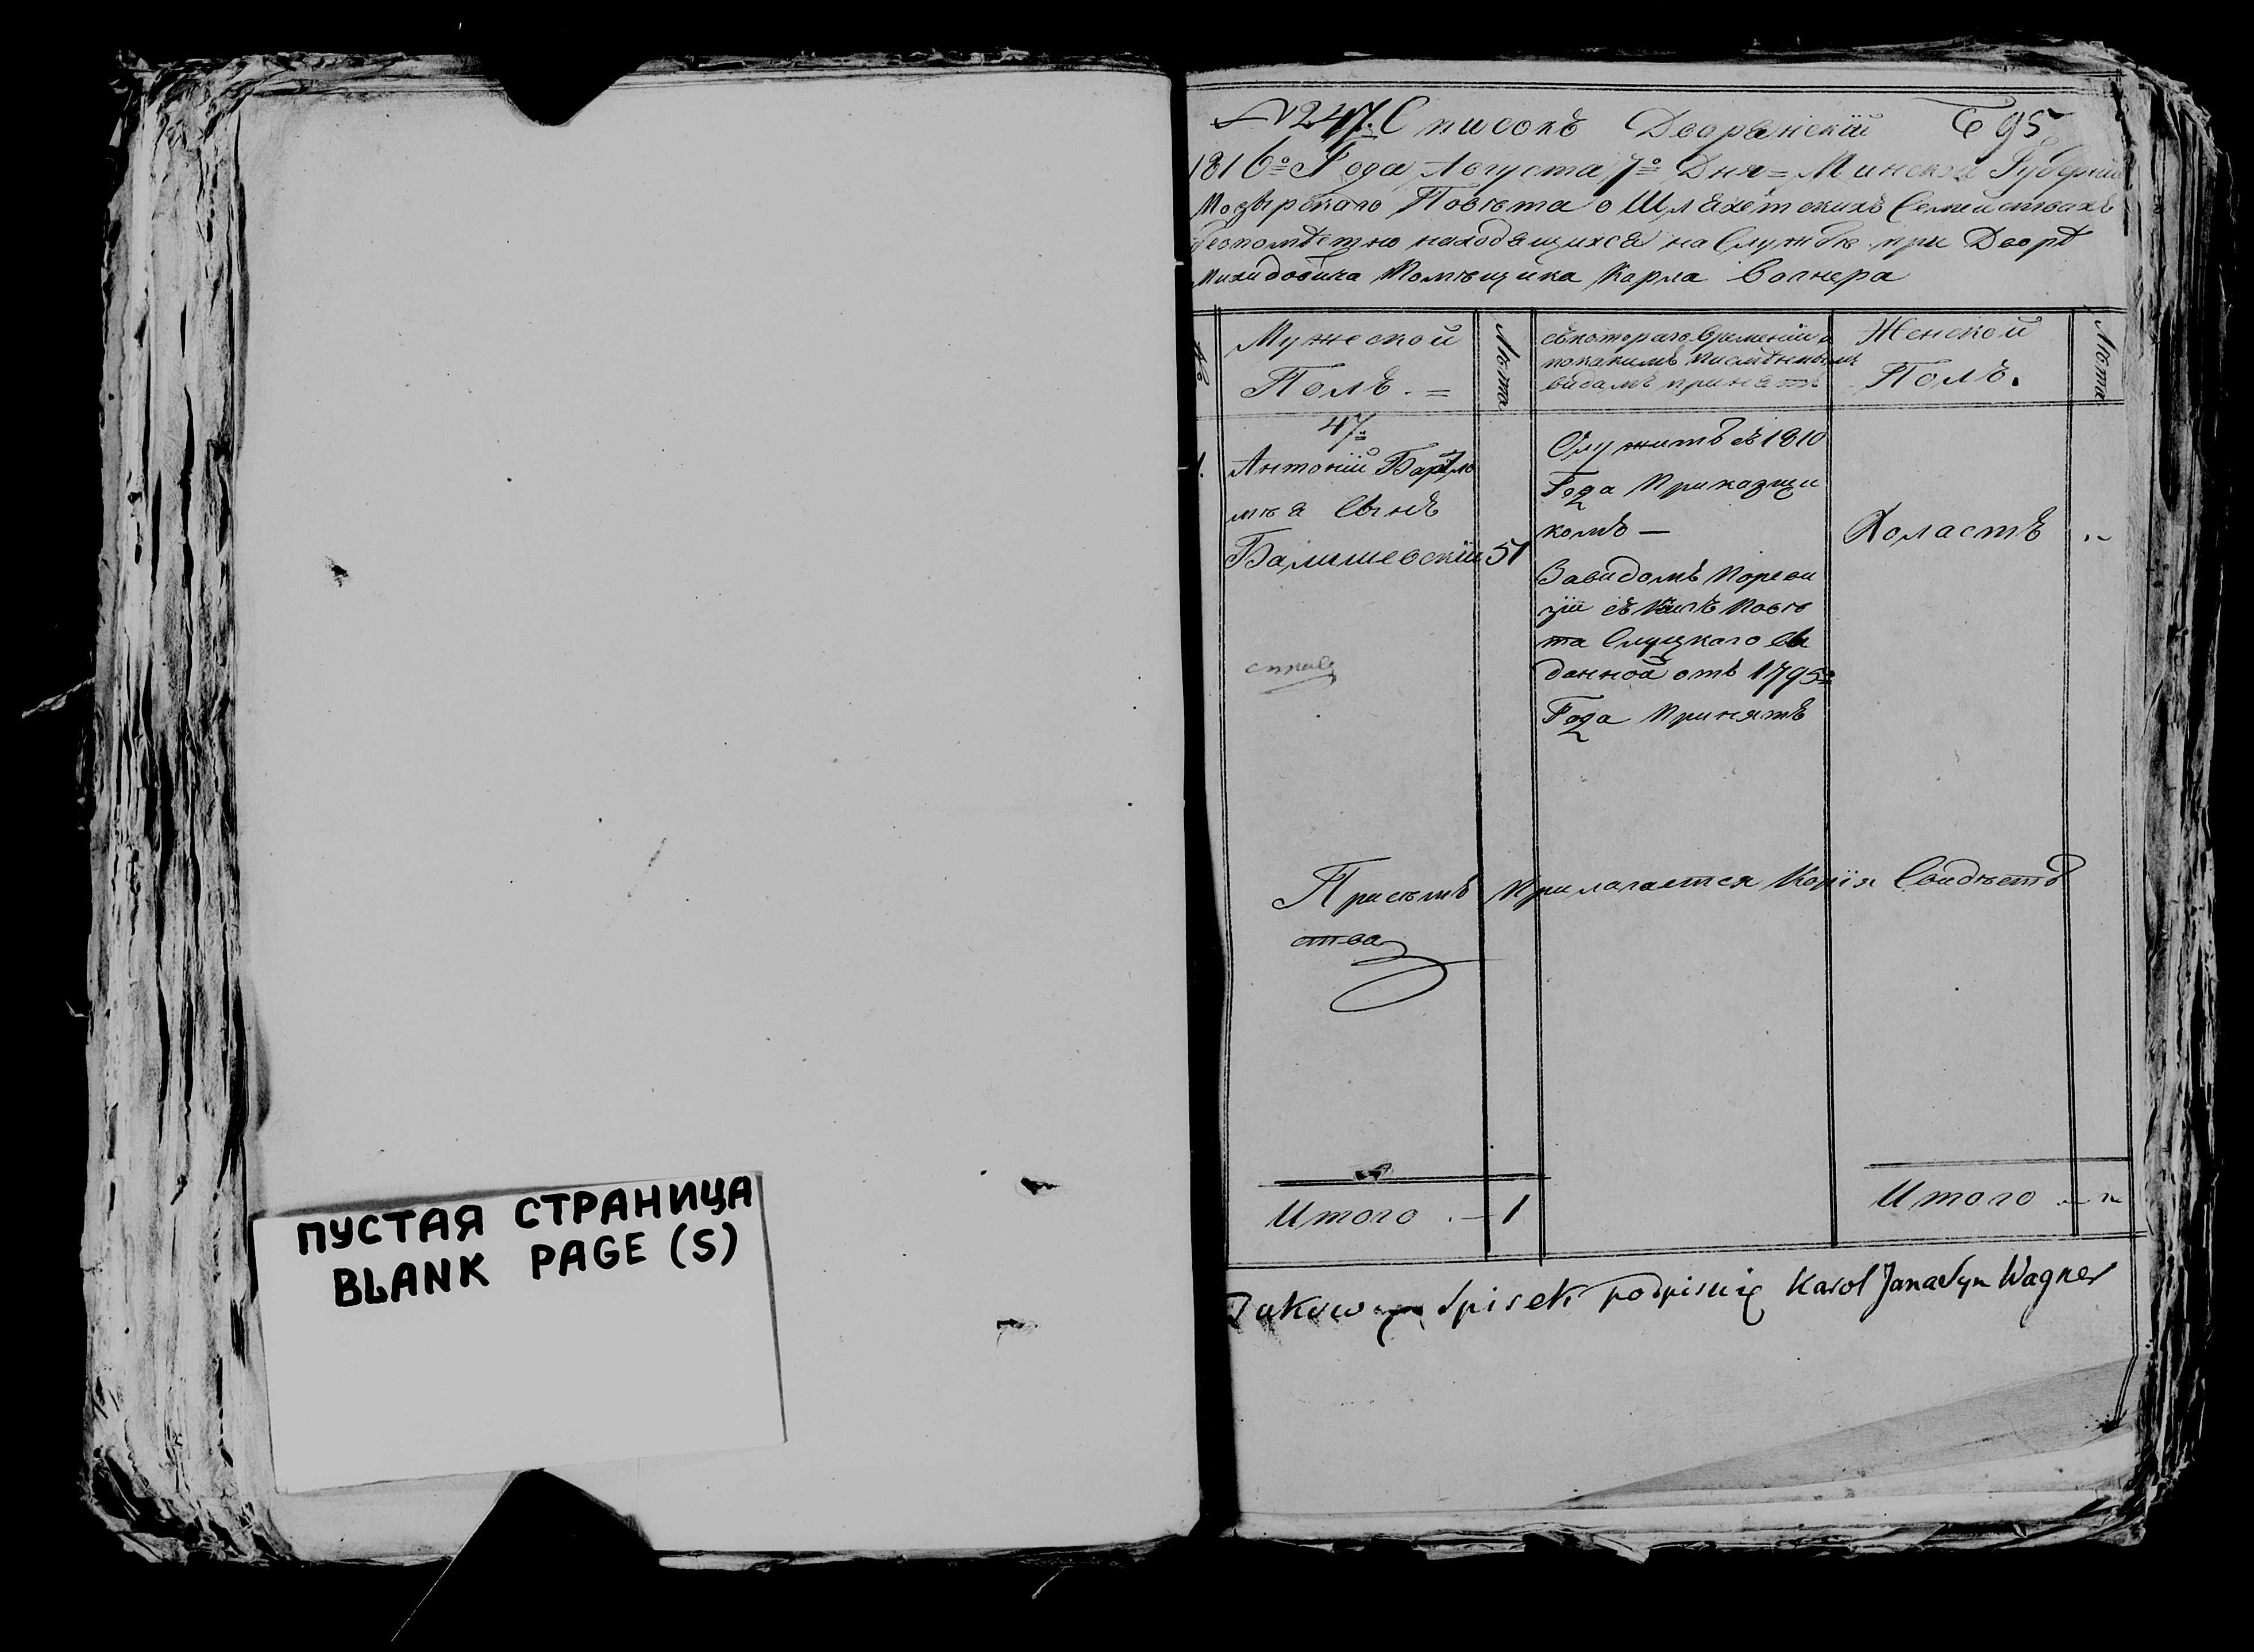 ПУСТАЯ СТРАНИЦА
BLANK PAGE (S)
№ 247. Списокъ Дворянскій 95
1816º Года Августа 7º Дня = Минской Губерніи
Мозырскаго Повѣта о Шляхетскихъ Семействахъ
находящихся на Службѣ при Дворѣ
Помѣщика Карла Вагнера
№
Мужеской
Полъ. =
Лѣта
съ котораго Времении и
по какимъ Писменнымъ
видамъ принятъ
Женской
Полъ.
Лѣта
47
1.
Антоній Бартло
мѣя Сынъ
Балишевскій 51
Служитъ съ 1810
Года Приказщи
комъ —
За видомъ По реви
зіи съ Повѣ
та Слуцкаго вы
данной отъ 1795º
Года Принятъ
Холастъ
При семъ Прилагается Копія Свидѣтѣ
ства
Итого . — 1
Итого
Spisek podpisuię Karol Jana Syn Wagner